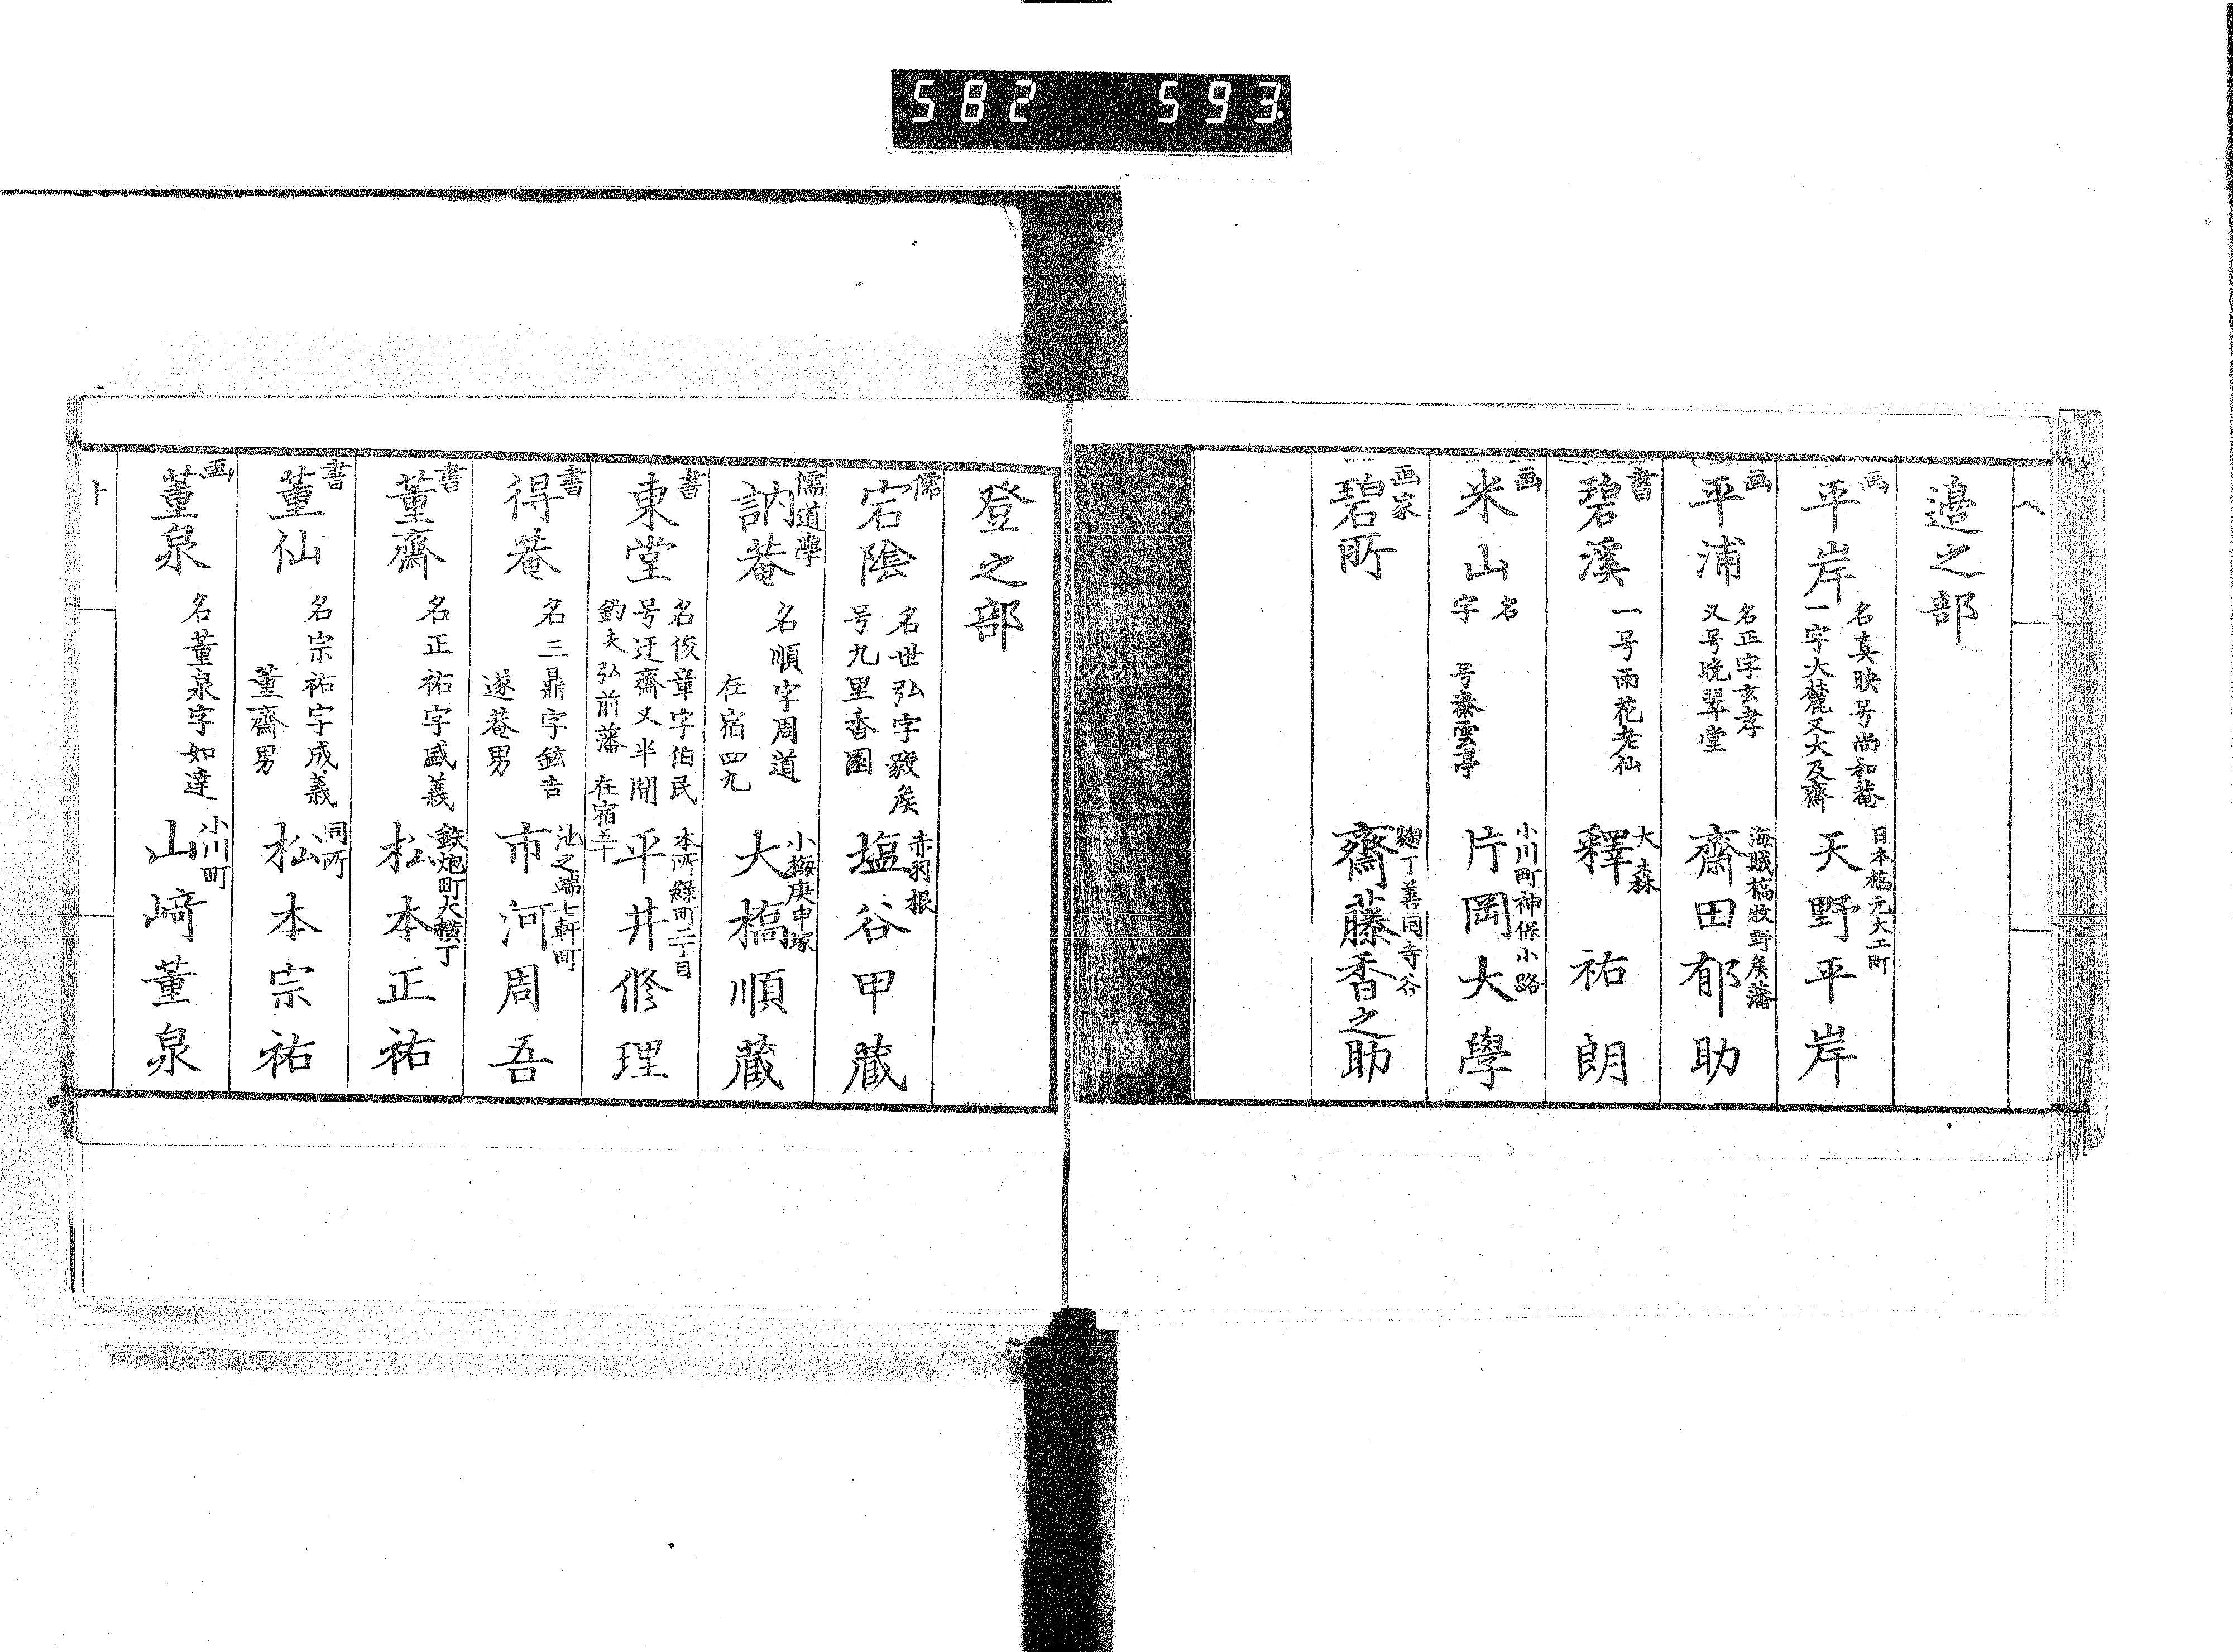 582 593
へ
邉之部
画
平岸
名真映号尚和菴
一字大麓又大及齋
日本橋元大工町
天野平岸
画
平浦
名正字玄孝
又号晩翠堂
海賊橋牧野矦藩
齋田郁助
書
碧溪
一号雨花老仙
大森
釋祐朗
画
米山
名
字 号泰雲亭
小川町神保小路
片岡大學
画家
碧所
麹丁善同寺谷
齋藤香之助
登之部
儒
宕陰
名世弘字毅矦
号九里香園
赤羽根
塩谷甲藏
儒道學
訥菴
名順字周道
在宿四九
小梅庚申塚
大橋順藏
書
東堂
名俊章字伯民
号迂齋又半閒
釣夫弘前藩 在宿五十
本所緑町二丁目
平井修理
書
得菴
名三鼎字鉉吉
遂菴男
池之端七軒町
市河周吾
書
董齋
名正祐字盛義
鉄炮町大横丁
松本正祐
書
董仙
名宗祐字成義
董齋男
同所
松本宗祐
画
董泉
名董泉字如達
小川町
山﨑董泉
ト